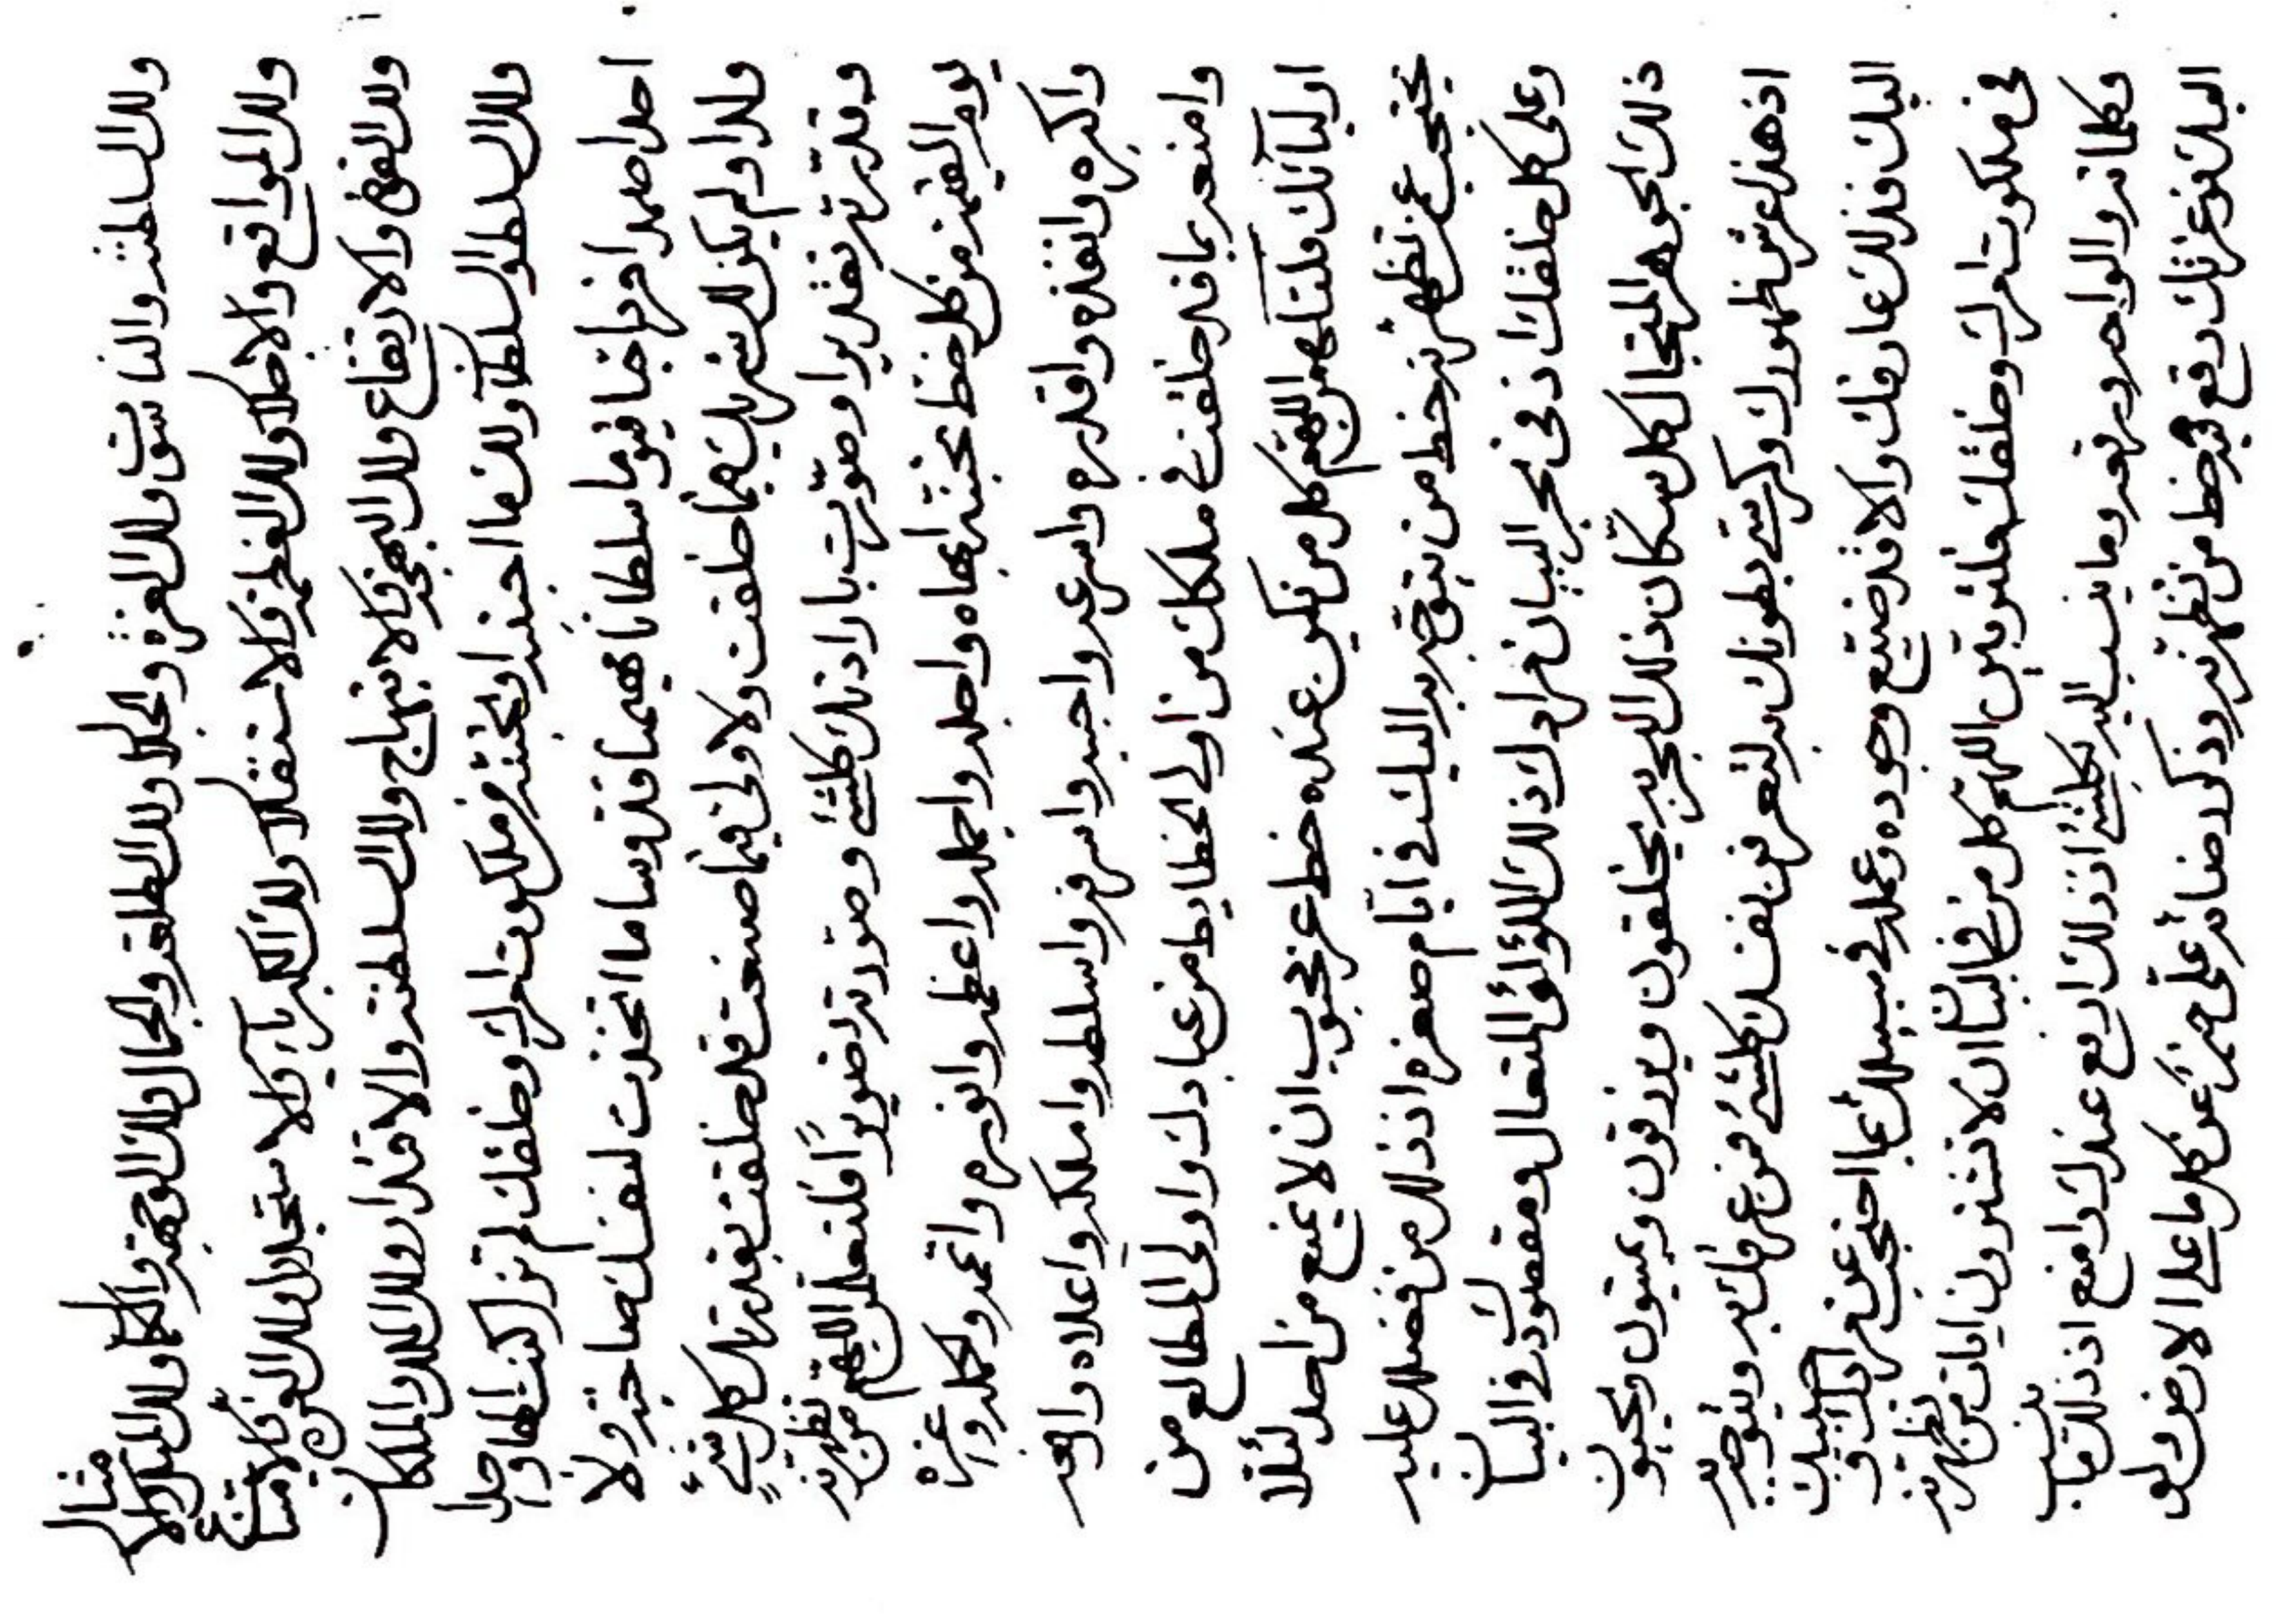 ولك السلطنة والناسوت ولك العزة والجلال ولك الطلعة والجمال ولك الوجهة والكمال ولك المثل والامثال
ولك المواقع والاجلال ولك العظمة والاستقلال ولك الكبرياء والاستجلال ولك القوة والامتناع
ولك القوة والارتفاع ولك البهجة والابتهاج ولك السلطنة والاقتدار ولك الملك والملكان
ولك السلط والسلطان ولك ما احببته او تحبنه من ملكوت امرك وخلقك لم تزل كنت الها واحدا
احدا صمدا فردا حيا قيوما سلطانا مهيمنا قدوسا ما اتخذت لنفسك صاحبة ولا
ولدا ولم يكن لك شريك فيما خلقت ولا ولي فيما صنعت قد خلقت بقدرتك كل شئ
وقدرته تقديرا وصورت بارادتك كلشئ وصورته تصويرا فلتعلمن اللهم من تظهرنه
يوم القيمة من كل خط تحبنه ابهاه واجله واجمله واعظمه وانوره واتمه واكمله واعزه
واكبره وانفذه واقدره واسرعه واحبه واشرفه واسلطه واملكه واعلاه وارفعه
وامنعه بما قد خلقت في ملكك من اولي الخطايط من عبادك واولى المطالع من
اوليائك فلتلهمن اللهم كل من يكن عنده خط عز محبوب ان لا يمنع من احد لئلا
يحتجب عمن تظهرنه خط من يتوجه به اليك في ايام صغره اذ ذلك من فضلك عليه
وعلى كل خلقك اذ في بحر البيان مرادك ذلك اللؤلؤ المتعال ومقصودك في البيان
ذلك الجوهر المتجال كل سكان ذلك البحر به يخلقون ويرزقون ويميتون ويحيون
اذ هذا عرش ظهورك وكرسي بطونك به لتعرفن نفسك كلشئ فمن عرفك به وتوجه به
اليك فذلك عارفك والا قد ضيع وجوده وعمله في سبيلك بما احتجب عن مرادك و حبيبك
في ملكوت امرك وخلقك فلتوفقن اللهم كل من في البيان ان لا تشترون ايات من تظهرنه
وكلماته والواحه ورقعه وما ينسب اليه بكلشئ اذ ذلك ارفع عندك وامنع اذ ذلك ما ينسب
اليك فوعزتك رقع فيه خط من تظهرنه وذكر رضائه على عن كل ما على الارض لو